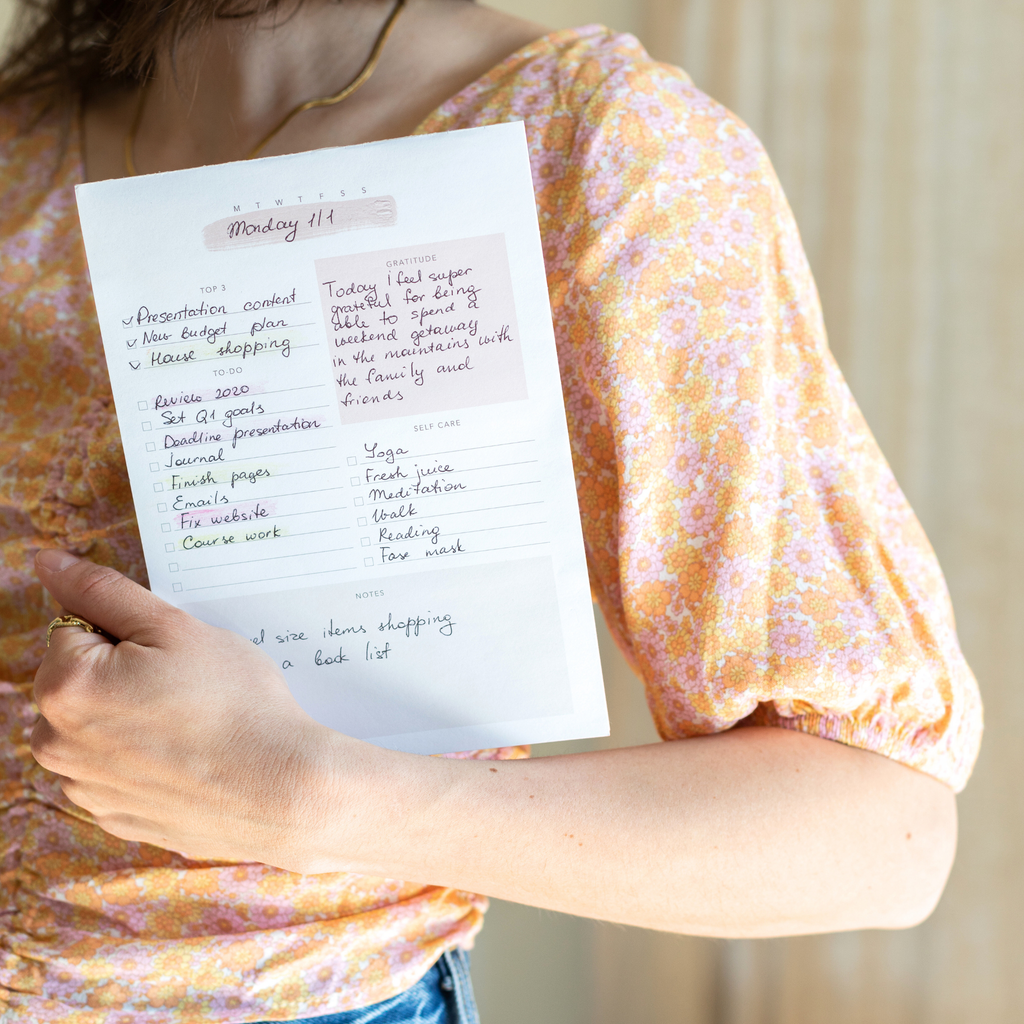 M T W T F S S
Monday 1/1
TOP 3
Presentation content
New budget plan
House shopping
TO-DO
Review 2020
Set Q1 goals
Deadline presentation
Journal
Finish pages
Emails
Fix website
Course work
GRATITUDE
Today I feel super
grateful for being
able to spend a
weekend getaway
in the mauntains with
the family and
friends
SELF CARE
Yoga
Fresh juice
Meditation
Walk
Reading
Fase mask
NOTES
el size items shopping
a book list